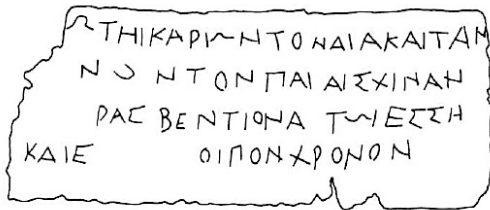 ΩΤΗΙΚΑΡΙΩΝΤΟΝΔΙΑΚΑΙΤΑΝ
ΝΩΝΤΟΝΠΑΙΑΙΣΧΙΝΑΝ
ΡΑΣ ΒΕΝΤΙΟΝΑ ΤΩΙΕΣΣΗ
ΚΑΙΕ ΟΙΠΟΝΧΡΟΝΟΝ